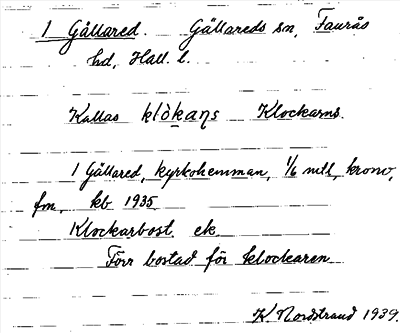 1 Gällared. Gällareds sn, Faurås
hd, Hall. l.
Kallas klò̀kaṇs Klockarns.
1 Gällared, kyrkohemman, 1/6 mtl, krono,
fm, kb 1935.
Klockarbost. ek.
Förr bostad för klockaren.
K. Nordstrand 1939.